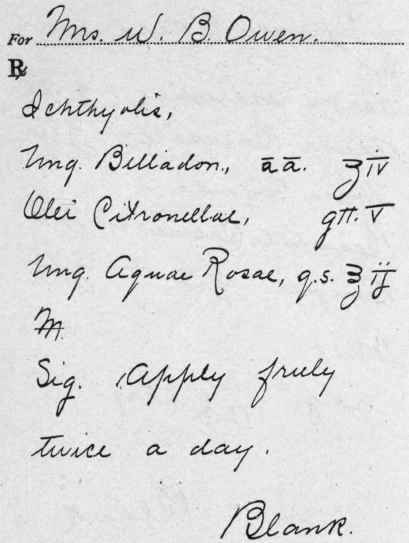 For Mrs. W. B. Owen.
℞
Ichthyolis,
Ung. Belladon., āā. ʒiv
Olei Citronellae, gtt. V
Ung. Aquae Rosae, q.s. ℥ij
M.
Sig. Apply freely
twice a day.
Blank.